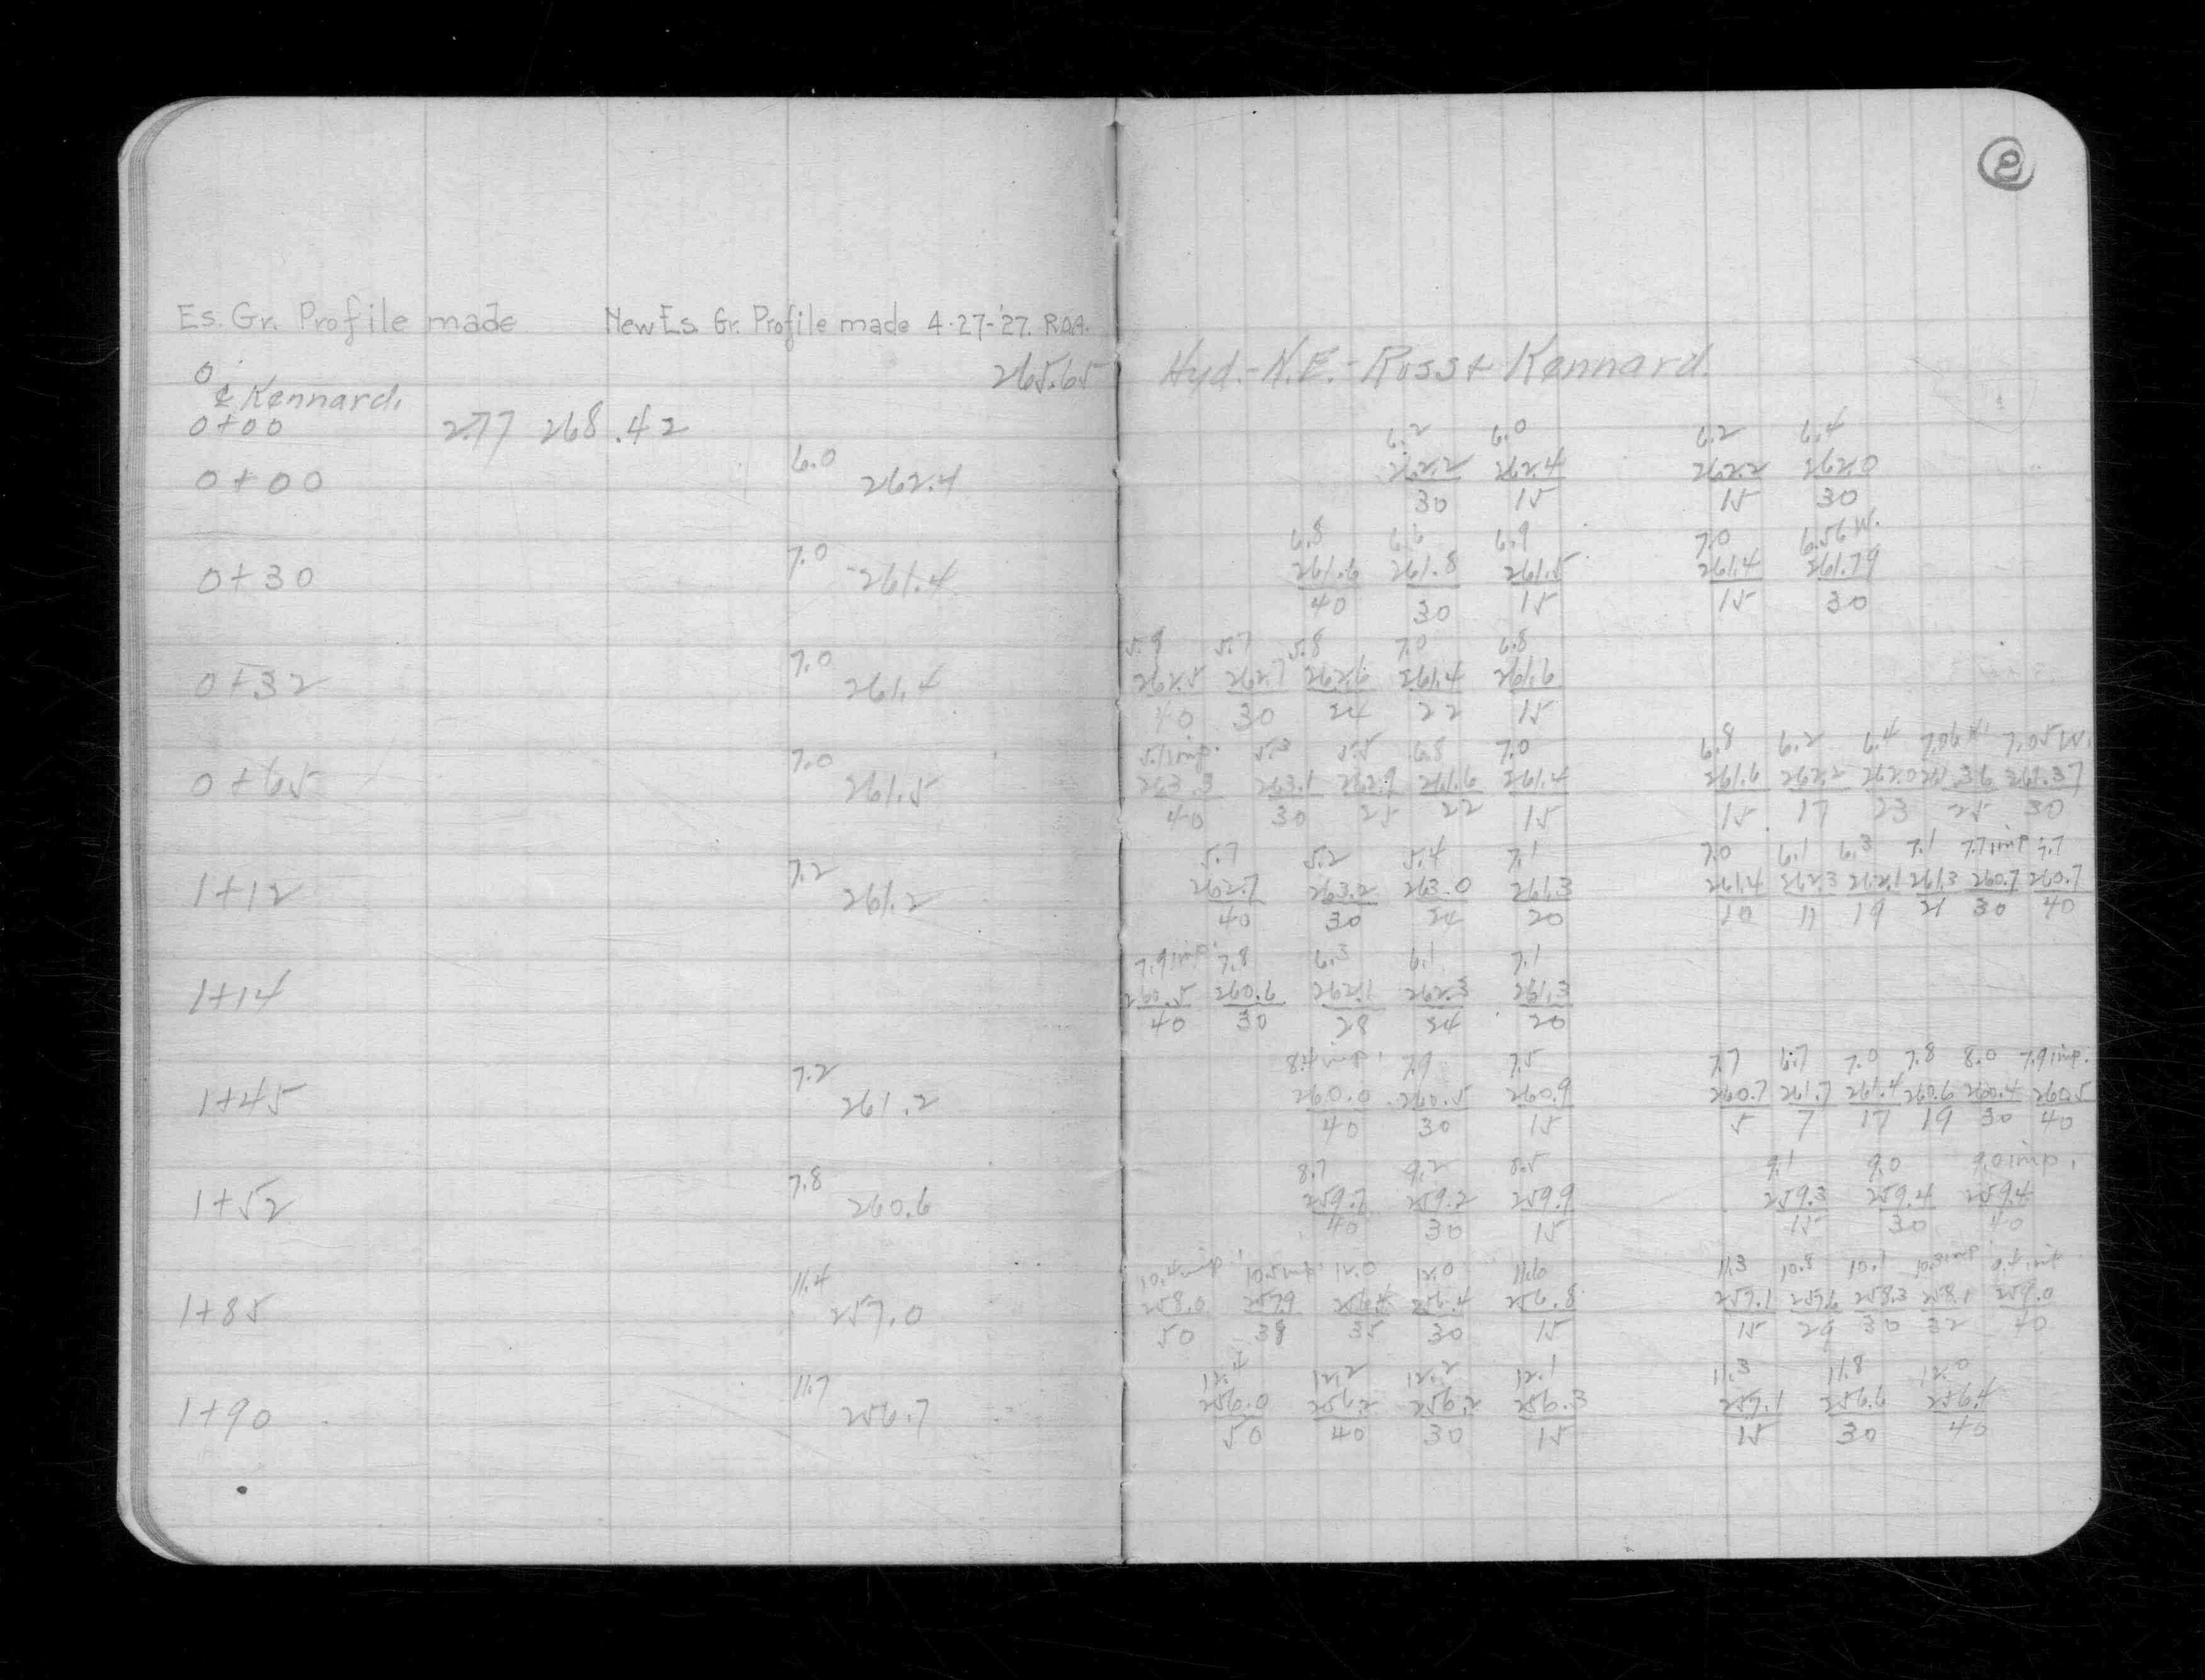 2
Es. Gr. Profile made New Es. Gr. Profile made 4-27-'27. R.A.A.
265.65 Hyd.-N.E.-Ross & Kennard.
0
¢ Kennard.
0+00 2.77 268.42
6.2 6.0 6.2 6.4
0+00 6.0 262.4 262.2 262.4 262.2 262.0
30 15 15 30
6.8 6.6 6.9 7.0 6.56 W.
0+30 7.0 261.4 261.6 261.8 261.5 261.4 261.79
40 30 15 15 30
5.9 5.7 5.8 7.0 6.8
0+32 7.0 261.4 262.5 262.7 262.6 261.4 261.6
40 30 24 22 15
5.1 imp. 5.3 5.5 6.8 7.0 6.8 6.2 6.4 7.06 W. 7.05 W.
0+65 7.0 261.5 263.3 263.1 262.9 261.6 261.4 261.6 262.2 262.0 261.36 261.37
40 30 25 22 15 15 17 23 25 30
5.7 5.2 5.4 7.1 7.0 6.1 6.3 7.1 7.7 imp 7.7
1+12 7.2 261.2 262.7 263.2 263.0 261.3 261.4 262.3 262.1 261.3 260.7 260.7
40 30 24 20 10 11 19 21 30 40
7.9 imp. 7.8 6.3 6.1 7.1
1+14 260.5 260.6 262.1 262.3 261.3
40 30 28 24 20
8.4 imp. 7.9 7.5 7.7 6.7 7.0 7.8 8.0 7.9 imp.
1+45 7.2 261.2 260.0 260.5 260.9 260.7 261.7 261.4 260.6 260.4 260.5
40 30 15 5 7 17 19 30 40
8.7 9.2 8.5 9.1 9.0 9.0 imp.
1+52 7.8 260.6 259.7 259.2 259.9 259.3 259.4 259.4
40 30 15 15 30 40
10.4 imp. 10.5 imp. 12.0 12.0 11.6 11.3 10.8 10.1 10.3 imp 9.4 imp
1+85 11.4 257.0 258.0 257.9 256.4 256.4 256.8 257.1 257.6 258.3 258.1 259.0
50 38 35 30 15 15 29 30 32 40
12.4 12.2 12.2 12.1 11.3 11.8 12.0
1+90 11.7 256.7 256.0 256.2 256.2 256.3 257.1 256.6 256.4
50 40 30 15 15 30 40